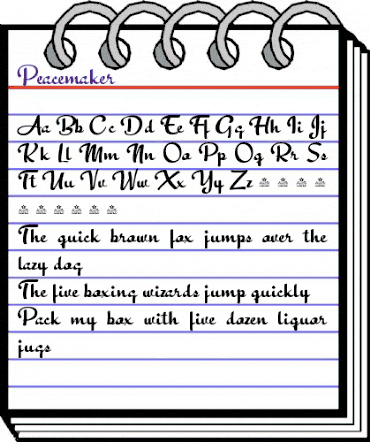 Peacemaker
Aa Bb Cc Dd Ee Ff Gg Hh Ii Jj
Kk Ll Mm Nn Oo Pp Qq Rr Ss
Tt Uu Vv Ww Xx Yy Zz
The quick brown fox jumps over the
lazy dog
The five boxing wizards jump quickly
Pack my box with five dozen liquor
jugs